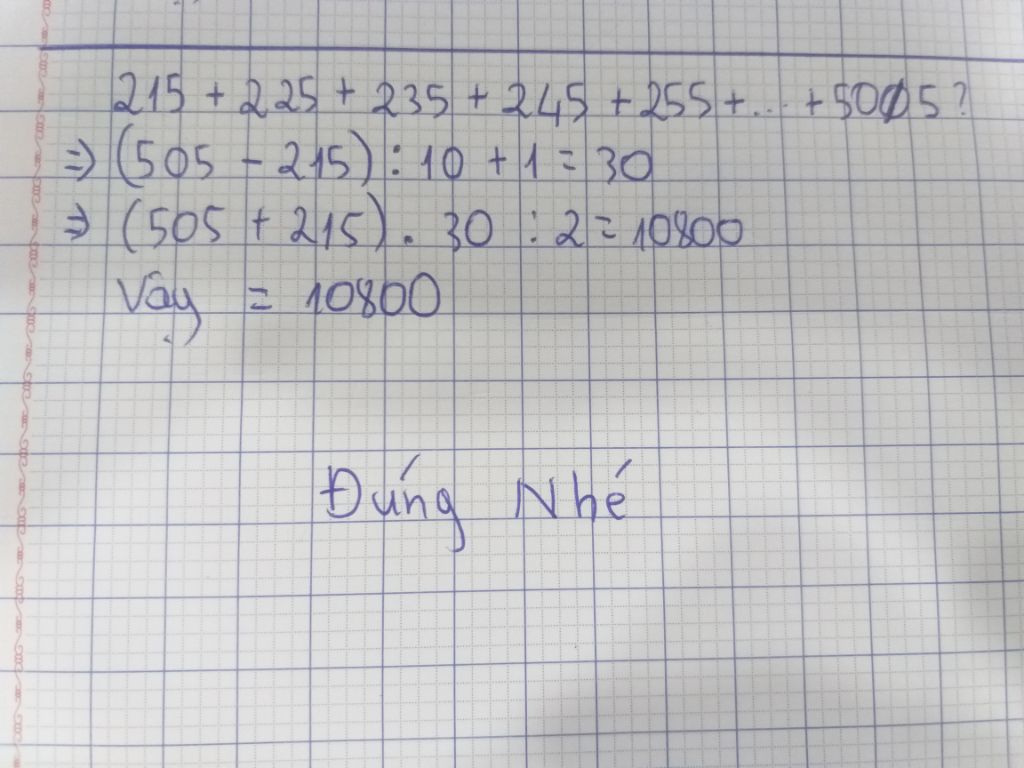 215 + 225 + 235 + 245 + 255 + ... + 505?
⇒ (505 - 215) : 10 + 1 = 30
⇒ (505 + 215) . 30 : 2 = 10800
Vậy = 10800
Đúng Nhé